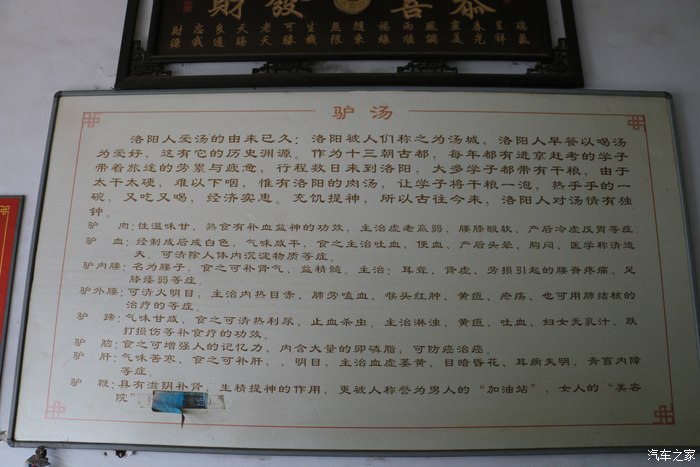 恭喜發財
瑞氣
呈祥
春光
盡美
風調
雨順
福緣
隨來
無限
生機
可勝
老天
天賜
良通
忠我
財源
驴汤
洛阳人爱汤的由来已久；洛阳被人们称之为汤城，洛阳人早餐以喝汤
为爱好，这有它的历史渊源。作为十三朝古都，每年都有进京赶考的学子
带着旅途的劳累与疲惫，行程数日来到洛阳，大多学子都带有干粮，由于
太干太硬，难以下咽，惟有洛阳的肉汤，让学子将干粮一泡，热乎乎的一
碗，又吃又喝，经济实惠。充饥提神，所以古往今来，洛阳人对汤情有独
钟。
驴 肉：性温味甘，熟食有补血益神的功效，主治虚老羸弱、腰膝酸软、产后冷虚反胃等症
驴 血：经制成后成白色，气味咸平，食之主治吐血、便血、产后头晕、胸闷、医学称清道
夫。可清除人体内沉淀物质等症。
驴内腰：名为腰子，食之可补肾气、益精髓。主治；耳聋、肾虚、劳损引起的腰脊疼痛、足
膝痿弱等症。
驴外腰：可清火明目，主治内热目赤、肺劳嗑血、喉头红肿、黄疸、疮疡、也可用肺结核的
治疗的等症。
驴 蹄：气味甘咸，食之可清热利尿、止血杀虫。主治淋浊、黄疸、吐血、妇女无乳汁、跌
打损伤等补食疗的功效。
驴 脑：食之可增强人的记忆力，内含大量的卵磷脂，可防癌治癌。
驴 肝：气味苦寒，食之可补肝、、明目、主治血虚姜黄、目暗昏花、耳病失明、青盲内障
等症。
驴 鞭：具有滋阴补肾、生精提神的作用，更被人称誉为男人的“加油站”，女人的“美容
院”
汽车之家